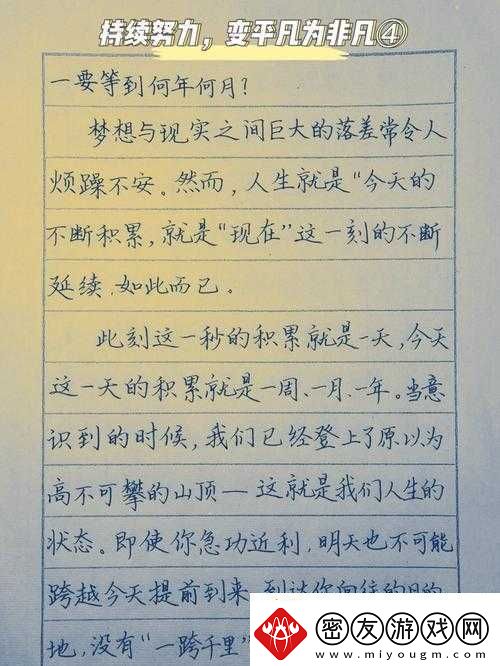 持续努力，变平凡为非凡④
一要等到何年何月？
梦想与现实之间巨大的落差常令人
烦躁不安。然而，人生就是“今天的
不断积累，就是“现在”这一刻的不断
延续，如此而已。
此刻这一秒的积累就是一天，今天
这一天的积累就是一周、一月、一年。当意
识到的时候，我们已经登上了原以为
高不可攀的山顶—这就是我们人生的
状态。即使你急功近利，明天也不可能
跨越今天提前到来。到达你向往的目的
地，没有“一跨千里”
密友游戏网
www.miyougm.com